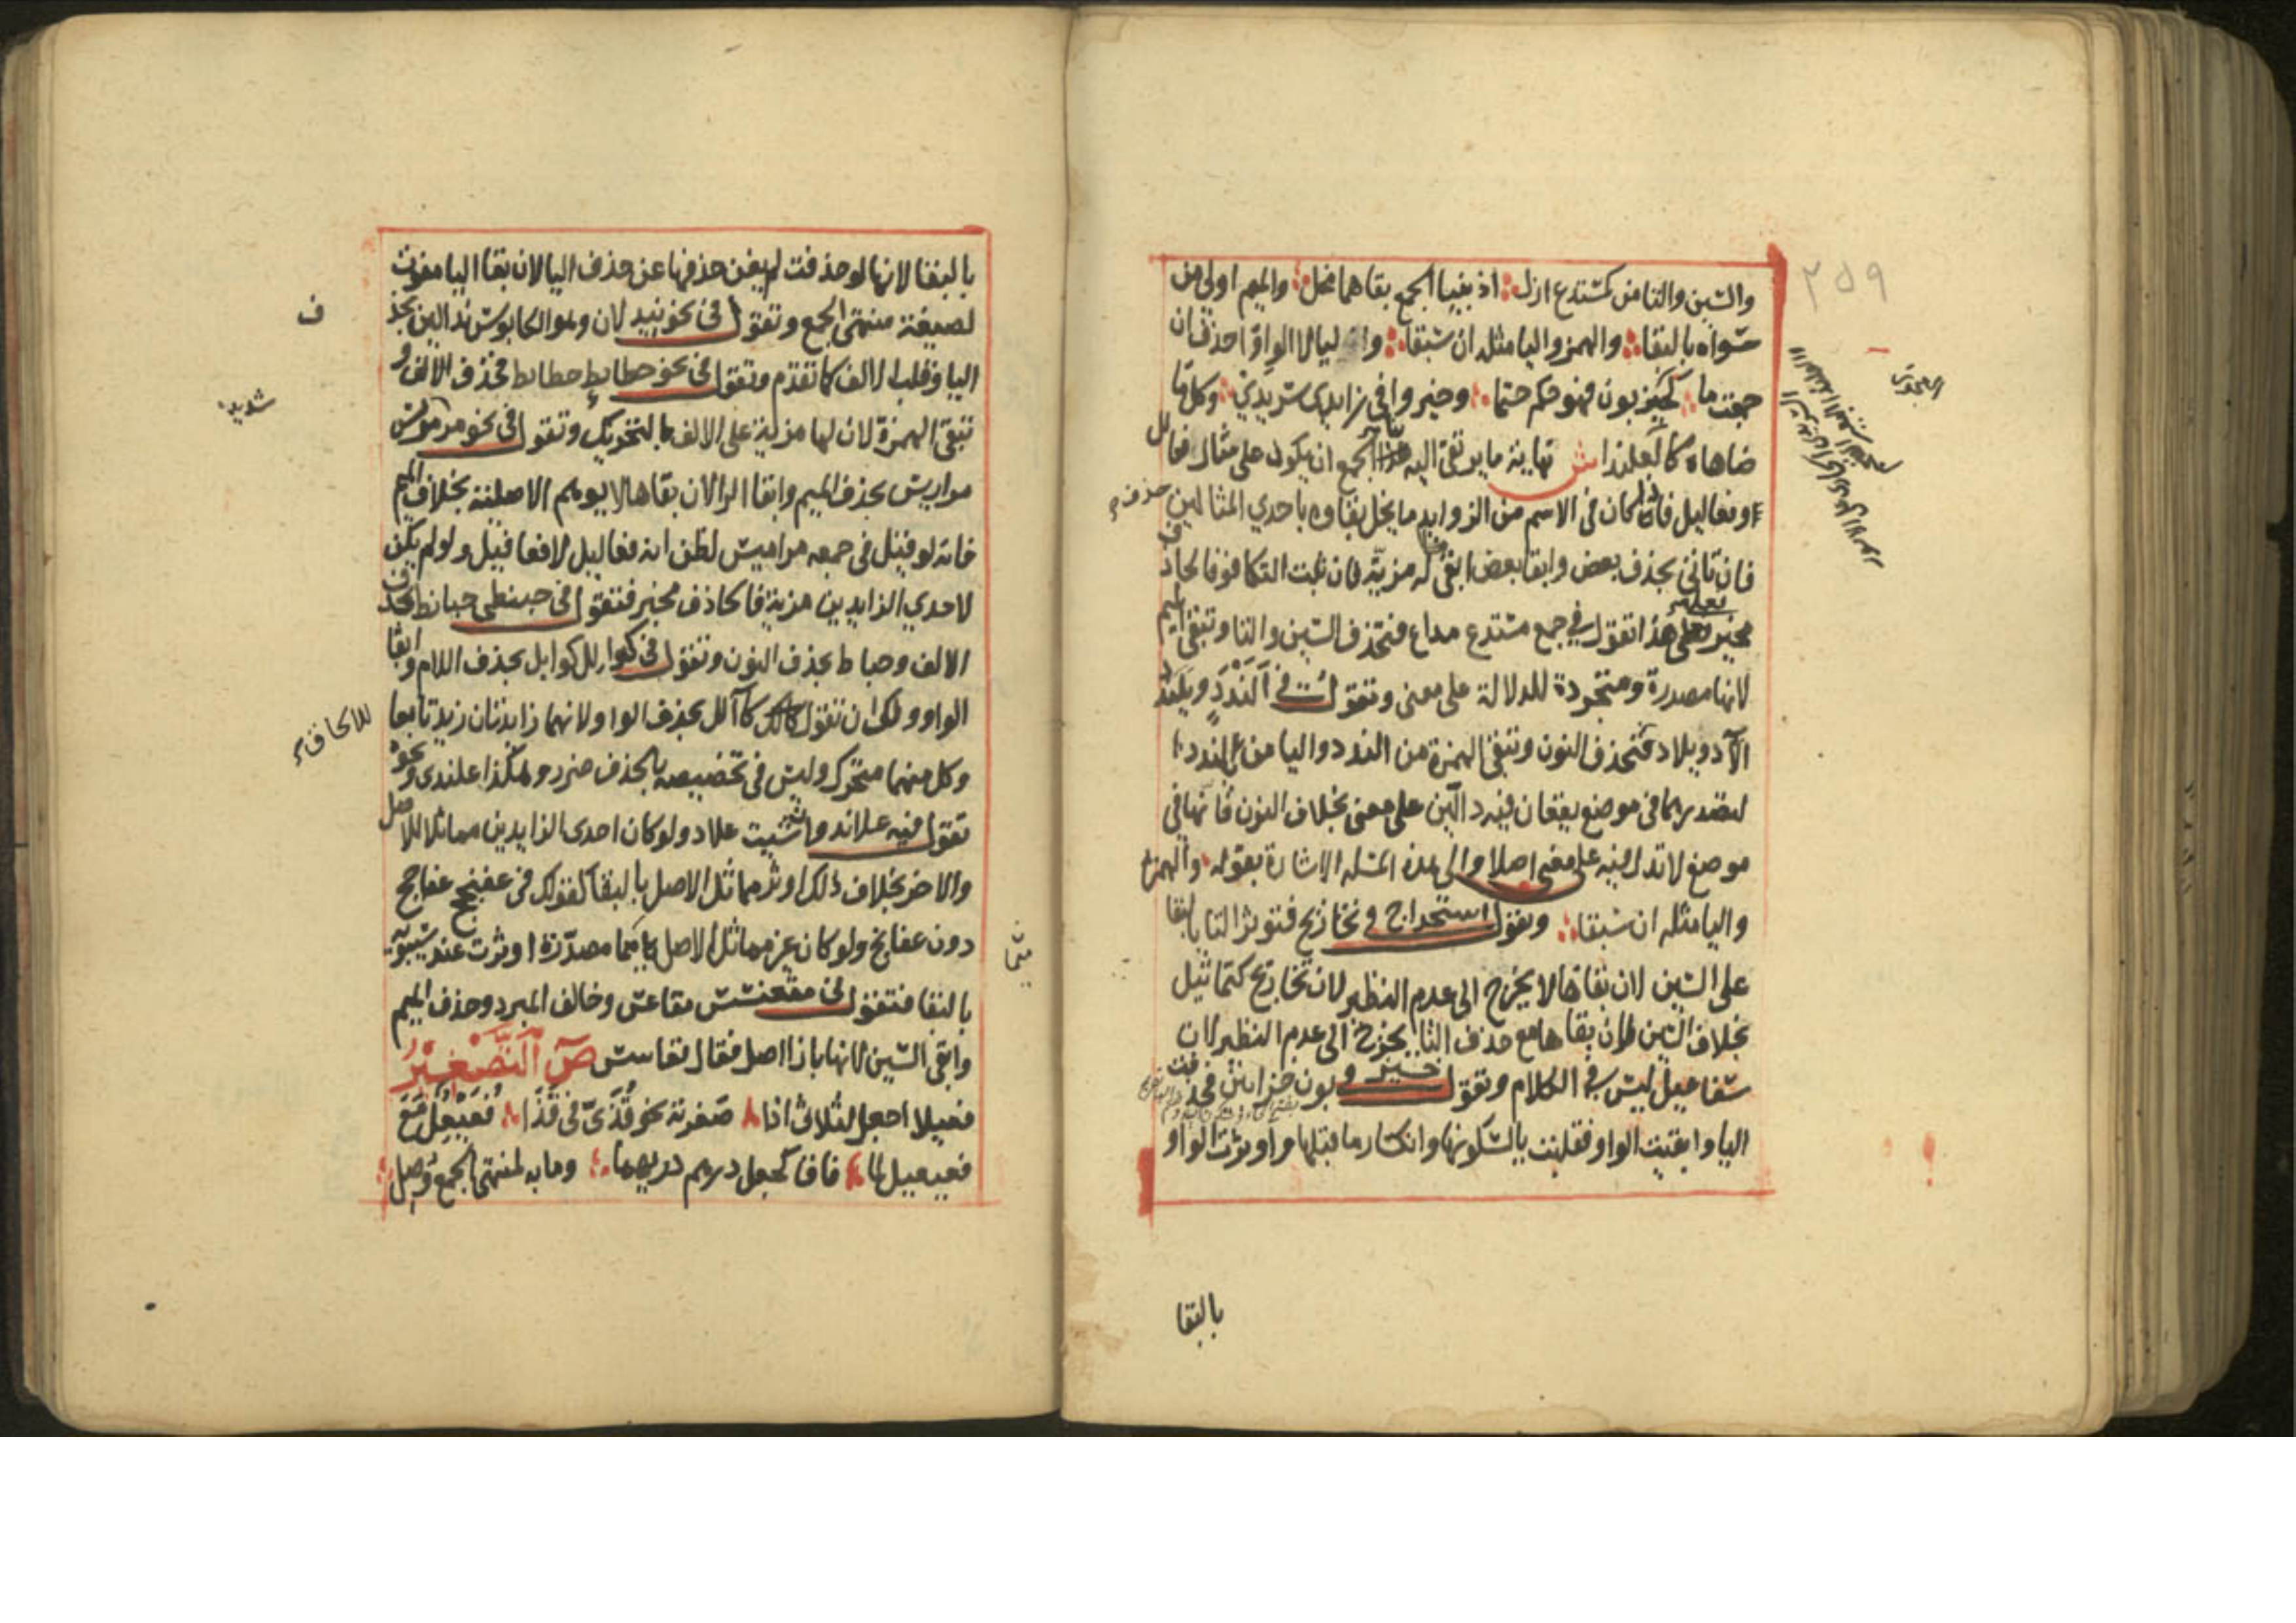 والسين والتا من كمستدع ازل اذ ببنا الجمع بقاهما مخل والميم اولى من
سواه بالبقا والهمز واليا مثله ان سبقا واليا لا الواو احذف ان
جمعت ما كحيزبون فهو حكم حتما وخيروا في زايدي سرندي وكل ما
ضاهاه كالعلندا ش نهاية ما يرتقى اليه الجمع ان يكون على مثال فعالل
او فعاليل فاذا كان في الاسم من الزوايد ما يخل بقاوه باحدي المثالين حذف
فان تاتى بحذف بعض وابقا بعض ابقى ما له مزية فان ثبت التكافو فالحاذف
مخير فعلى هذا تقول في جمع مستدع مداع فتحذف السين والتا وتبقى الميم
لانها مصدرة ومتجردة للدلالة على معنى وتقول في الندد ويلندد
الاد ويلاد فتحذف النون وتبقى الهمزة من الندد واليا من يلندد
لتصدرهما في موضع يقعان فيه دالين على معنى بخلاف النون فانها في
موضع لا تدل فيه على معنى اصلا والى هذه المسله الاشارة بقوله والهمز
واليا مثله ان سبقا وتقول في استخراج تخاريج فتوثر التا بالبقا
على السين لان بقاها لا يخرج الى عدم النظير لان تخاريج كتماثيل
بخلاف السين فان بقاها مع حذف التا يخرج الى عدم النظير لان
سفاعيل ليس في الكلام وتقول في حيزبون حزابين فحذفت
اليا وابقيت الواو فقلبت يا لسكونها وانكسار ما قبلها واوثرت الواو
بالبقا
بالبقا لانها لو حذفت لم يغن حذفها عن حذف اليا لان بقا اليا مفوت
لصيغة منتهى الجمع وتقول في نحو نيدلان وهو الكابوس ندالين بحذف
اليا وقلب الالف كما تقدم وتقول في نحو حطايط حطائط فتحذف الالف و
تبقى الهمزة لان لها مزية على الالف بالتحريك وتقول في نحو مرمريس
مراريس بحذف الميم وابقا الرا لان بقاها لا يوهم الاصلية بخلاف الميم
فانه لو قيل في جمعه مراميس لظن انه فعاليل لا فعافيل ولو لم يكن
لاحدي الزايدين مزية فالحاذف مخير فتقول في حبنطى حبانط بحذف
الالف وحباط بحذف النون وتقول في كوالل كوايل بحذف اللام وابقا
الواو ولك ان تقول كالل بحذف الواو لانهما زايدتان زيدتا معا للالحاف
وكل منهما متحرك وليس في تخصيصه بالحذف ضرر وهكذا علندى ونحوه
تقول فيه علاند وان شيت علاد ولو كان احدى الزايدين مماثلا للاصل
والاخر بخلاف ذلك اوثر مماثل الاصل بالبقا كقولك في عفنجج عفاجج
دون عفانج ولو كان غير مماثل الاصل ميما مصدرة اوثرت عند سيبويه
بالبقا فتقول في مقعنسس مقاعس وخالف المبرد وحذف الميم
وابقى السين لانها بازا اصل فقال قعاسس ص التصغير
فعيلا اجعل لثلاثى اذا صغرته نحو قذى في قذا فعيعل مع
فعيعيل لما فاق كجعل درهم دريهما وما به لمنتهى الجمع وصل